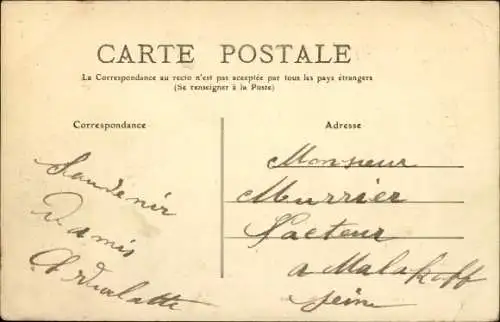 CARTE POSTALE
La Correspondance au recto n'est pas acceptée par tous les pays étrangers
(Se renseigner à la Poste)
Correspondance
Adresse
Monsieur
Murrier
Facteur
a Malakoff
Seine
d'amis